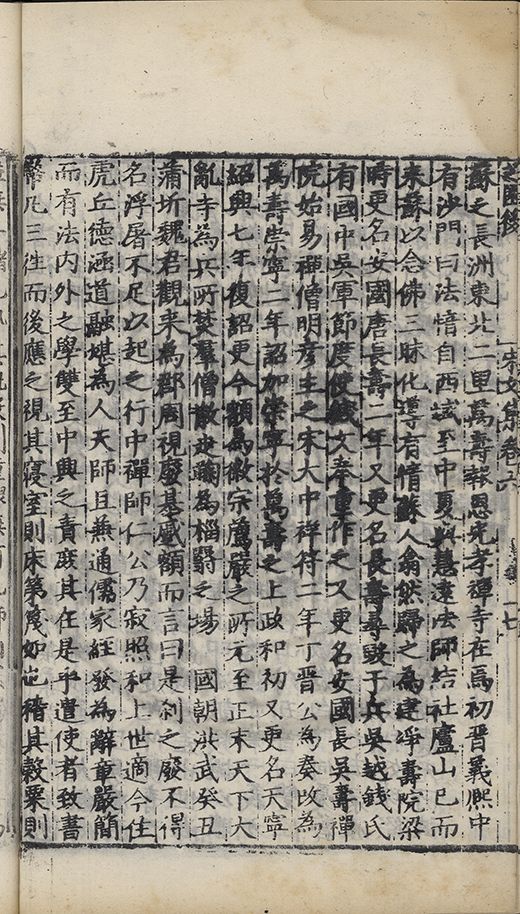 宋文集卷六 十七
蘇之長洲東北二里萬壽報恩光孝禪寺在焉初晉義熈中
有沙門曰法愔自西域至中夏與慧遠法師結社廬山已而
来蘇以念佛三昧化導有情蘇人翕然歸之為建淨壽院梁
時更名安國唐長壽二年又更名長壽尋毀于兵吳越錢氏
有國中吳軍節度使錢文奉重作之又更名安國長吳壽禪
院始易禪僧明彦主之宋大中祥符二年丁晉公為奏改為
萬壽崇寧二年詔加崇寧於萬壽之上政和初又更名天寧
紹興七年復詔更今額為徽宗薦嚴之所元至正末天下大
亂寺為兵所焚羣僧散走鞠為榛翳之場　國朝洪武癸丑
蒲圻魏君觀来為郡周視廢基蹙額而言曰是刹之廢不得
名浮屠不足以起之行中禪師仁公乃寂照和上世適今住
虎丘德涵道融堪為人天師且兼通儒家經發為辭章嚴簡
而有法内外之學雙至中興之責庶其在是乎遣使者致書
幣凡三徃而後應之視其寢室則床笫蔑如也稽其穀粟則